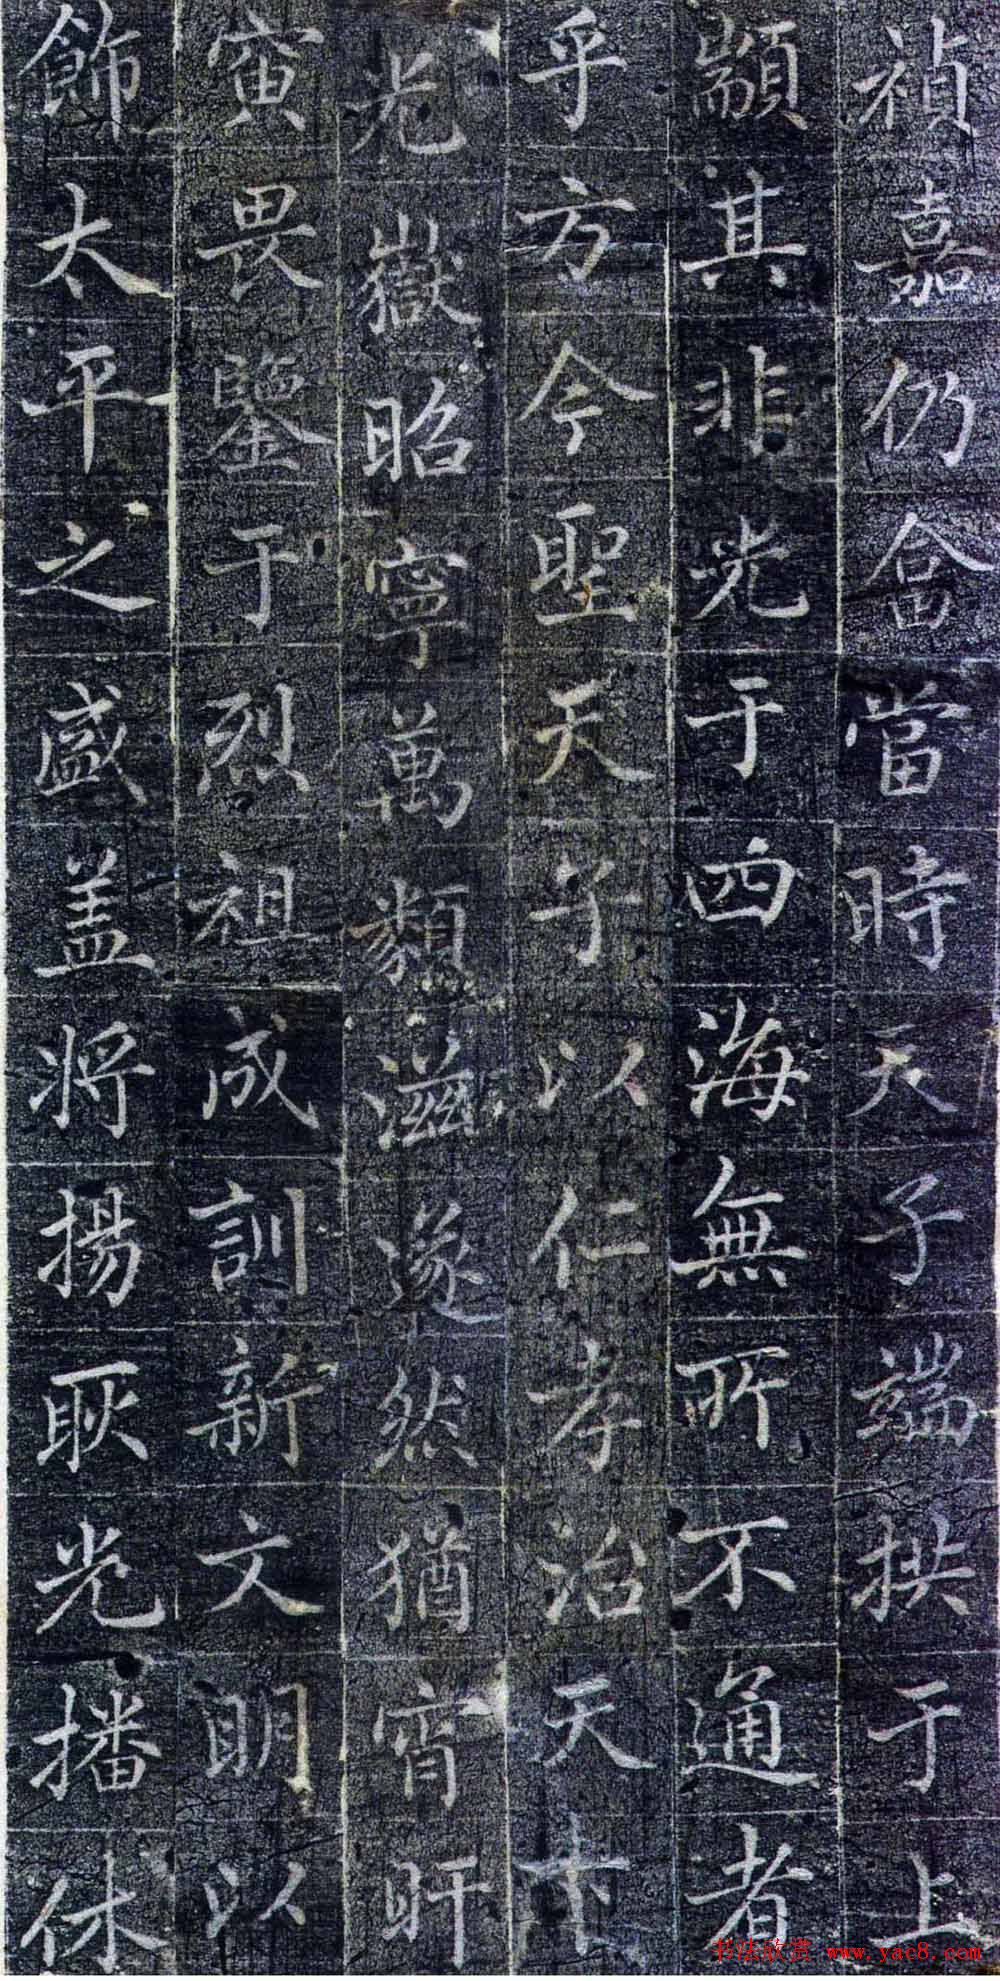 禎嘉仍畣當時天子端拱于上
顓其非光于四海無所不通者
乎方今聖天子以仁孝治天下
光嶽昭寧萬類滋遂然猶宵旰
寅畏鑒于烈祖成訓新文明以
飾太平之盛盖將揚耿光播休
书法欣赏 www.yac8.com